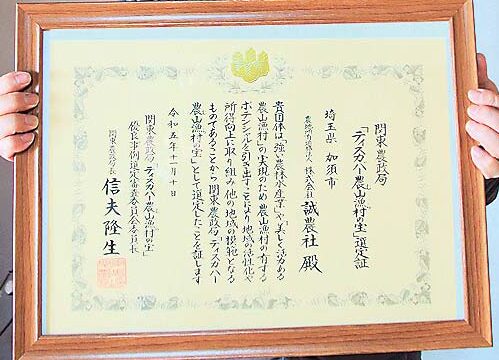 関東農政局
「ディスカバー農山漁村の宝」選定証
埼玉県 加須市
農地所有適格法人 株式会社 誠農社 殿
貴団体は「強い農林水産業」や「美しく活力ある
農山漁村」の実現のため農山漁村の有する
ポテンシャルを引き出すことにより地域の活性化や
所得向上に取り組み他の地域の模範となる
ものであることから「関東農政局ディスカバー
農山漁村の宝」として選定したことを証します
令和五年十一月十日
関東農政局「ディスカバー農山漁村の宝」
優良事例選定審査委員会委員長
関東農政局長 信夫隆生